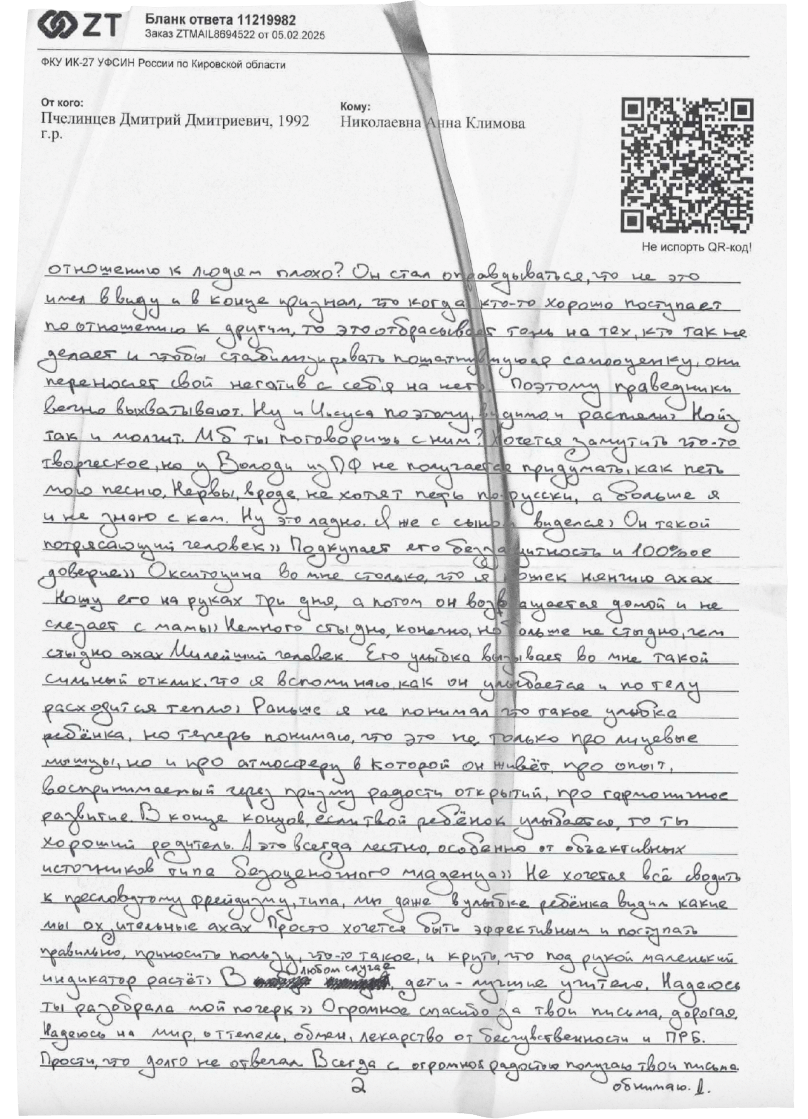 ZT
Бланк ответа 11219982
Заказ ZTMAIL8694522 от 05.02.2025
ФКУ ИК-27 УФСИН России по Кировской области
От кого:
Пчелинцев Дмитрий Дмитриевич, 1992
г.р.
Кому:
Николаевна Анна Климова
Не испорть QR-код!
отношению к людям плохо? Он стал оправдываться, что не это
имел ввиду и в конце признал, что когда кто-то хорошо поступает
по отношению к другим, то это отбрасывает тень на тех, кто так не
делает и чтобы стабилизировать пошатнувшуюся самооценку, они
переносят свой негатив с себя на него. Поэтому праведники
вечно выхватывают. Ну и Иисуса поэтому, видимо, и распяли)
так и молчит. Мб ты поговоришь с ним? Хочется замутить что-то
творческое, но у Володи из ПФ не получается придумать, как петь
мою песню, Нервы, вроде, не хотят петь по-русски, а больше я
и не знаю с кем. Ну это ладно. Я же с сыном виделся) Он такой
потрясающий человек)) Подкупает его беззащитность и 100%ое
доверие)) Окситоцина во мне столько, что я кошек нянчию ахах
Ношу его на руках три дня, а потом он возвращается домой и не
слезает с мамы) Немного стыдно, конечно, но больше не стыдно, чем
стыдно ахах Милейший человек. Его улыбка вызывает во мне такой
сильный отклик, что я вспоминаю, как он улыбается и по телу
расходится тепло) Раньше я не понимал что такое улыбка
ребёнка, но теперь понимаю, что это не только про лицевые
мышцы, но и про атмосферу в которой он живёт, про опыт,
воспринимаемый через призму радости открытий, про гармоничное
развитие. В конце концов, если твой ребёнок улыбается, то ты
хороший родитель. А это всегда лестно, особенно от объективных
источников типа безоценочного младенца)) Не хочется всё сводить
к пресловутому фрейдизму, типа, мы даже в улыбке ребёнка видим какие
мы ох\_ительные ахах Просто хочется быть эффективным и поступать
правильно, приносить пользу, что-то такое, и круто, что под рукой маленький
индикатор растёт) В любом случае, дети - лучшие учителя. Надеюсь
ты разобрала мой почерк)) Огромное спасибо за твои письма, дорогая.
Надеюсь на мир, оттепель, обмен, лекарство от бесчувственности и ПРБ.
Прости, что долго не отвечал. Всегда с огромной радостью получаю твои письма.
2
обнимаю. Д.